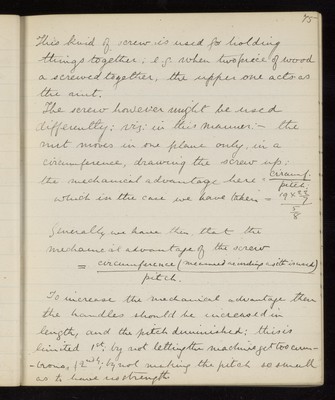 75
This kind of screw is used for holding
things together; e.g. when two pieces of wood
a screwed together, the upper one acts as
the nut.
The screw however might be used
differently; viz: in this manner:- the
nut moves in one plane only, in a
circumference, drawing the screw up:
the mechanical advantage here = circumf. / pitch
which in the case we have taken = 19 × 22/7 / 5/8
Generally we have then that the
mechanical advantage of the screw
= circumference (measured according as it is used) / pitch.
To increase the mechanical advantage then
the handles should be increased in
length, and the pitch diminished; this is
limited 1st; by not letting the machine get too cum-
brous, & 2ndly; by not making the pitch so small
as to have no strength